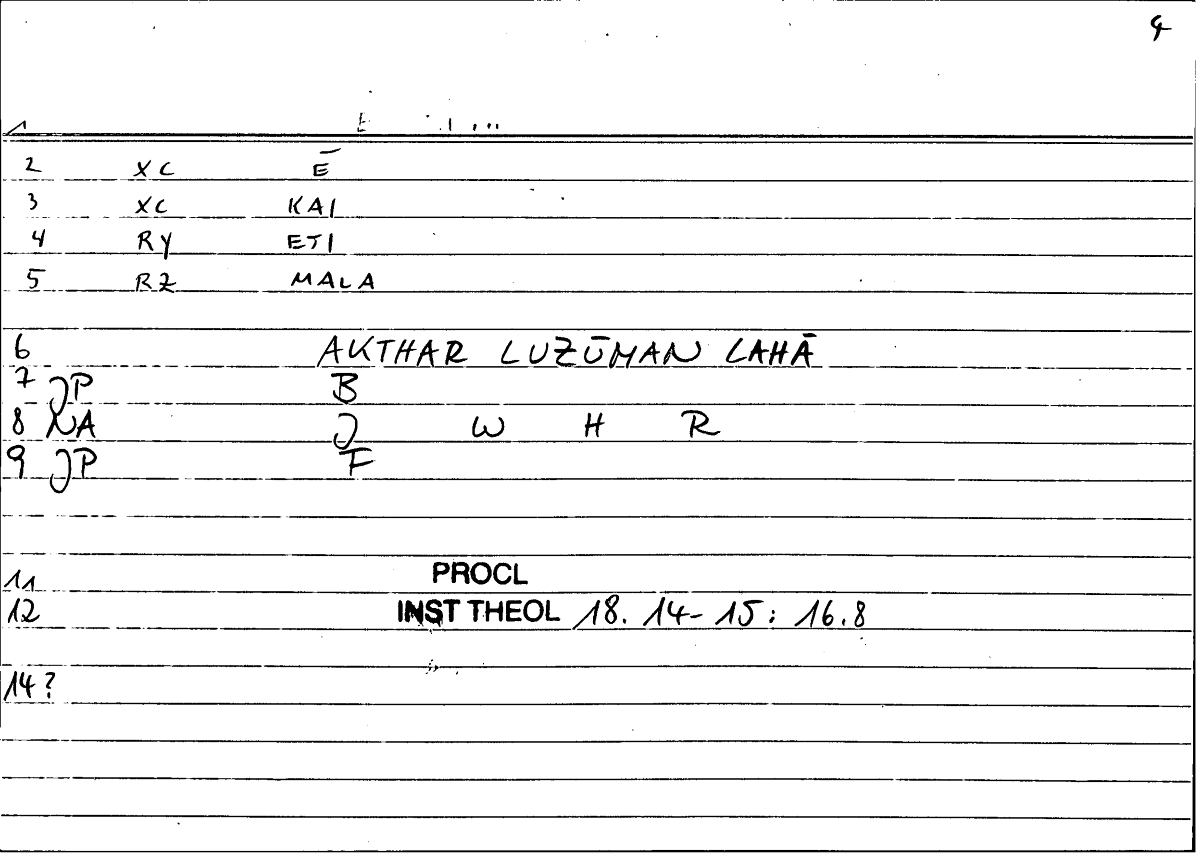 4
1
2 XC Ē
3 XC KAI
4 RY ETI
5 RZ MALA
6 AKTHAR LUZŪMAN LAHĀ
7 JP B
8 NA J W H R
9 JP F
11 PROCL
12 INST THEOL 18. 14-15: 16.8
14?